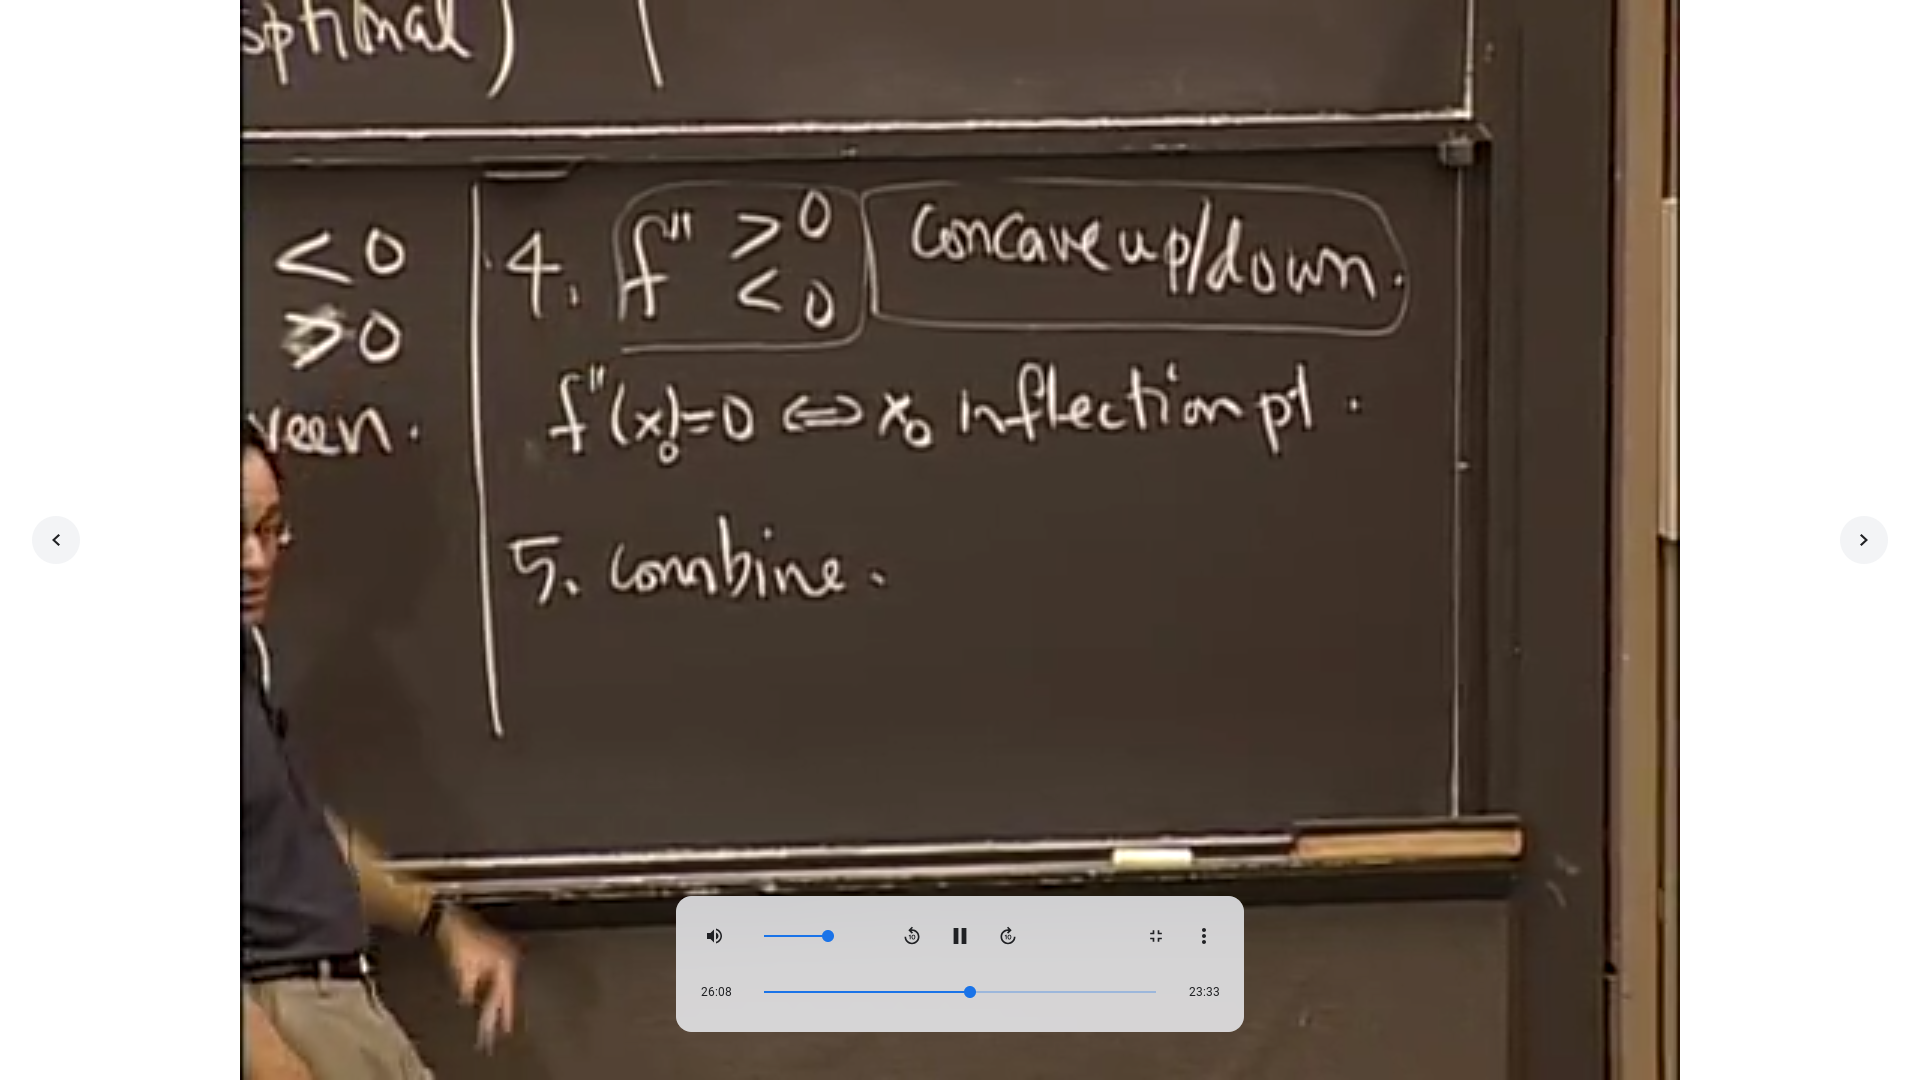 optional)
< 0
> 0
veen.
4. f" > 0 concave up/down.
< 0
f"(x₀)=0 ⇔ x₀ inflection pt.
5. combine.
10
10
26:08
23:33